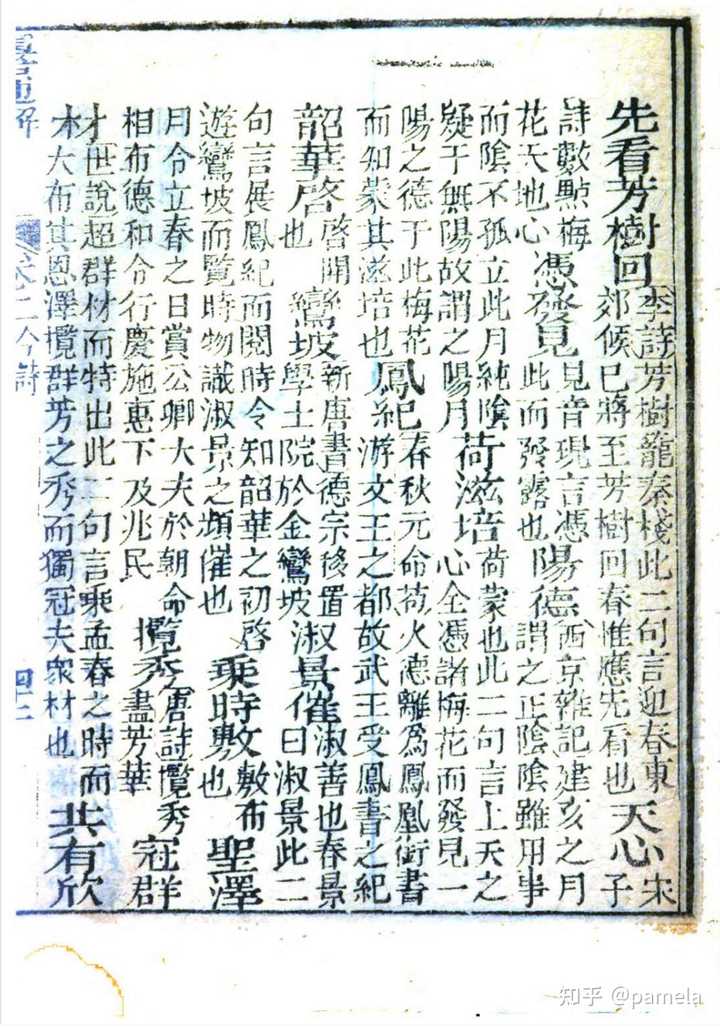 先看芳樹回李詩芳樹籠秦棧此二句言迎春東郊候已將至芳樹回春惟應先看也天心宋子
詩數點梅花天地心憑發見見音現言憑此而發露也陽德西京雜記建亥之月謂之正陰陰雖用事
而陰不孤立此月純陰疑于無陽故謂之陽月荷滋培荷蒙也此二句言上天之心全憑諸梅花而發見一
陽之德于此梅花而知蒙其滋培也鳳紀春秋元命苞火德離爲鳳凰銜書游文王之都故武王受鳳書之紀
韶華啓啓開也鸞坡新唐書德宗移置學士院於金鸞坡淑景催淑善也春景曰淑景此二
句言展鳳紀而閱時令知韶華之初啓遊鸞坡而覽時物識淑景之頻催也乘時敷敷布也聖澤
月令立春之日賞公卿大夫於朝命相布德和令行慶施惠下及兆民攬秀唐詩攬秀盡芳華冠群
材世說超群材而特出此二句言乘孟春之時而大布其恩澤攬群芳之秀而獨冠夫衆材也共有欣
卷二今詩
知乎 @pamela